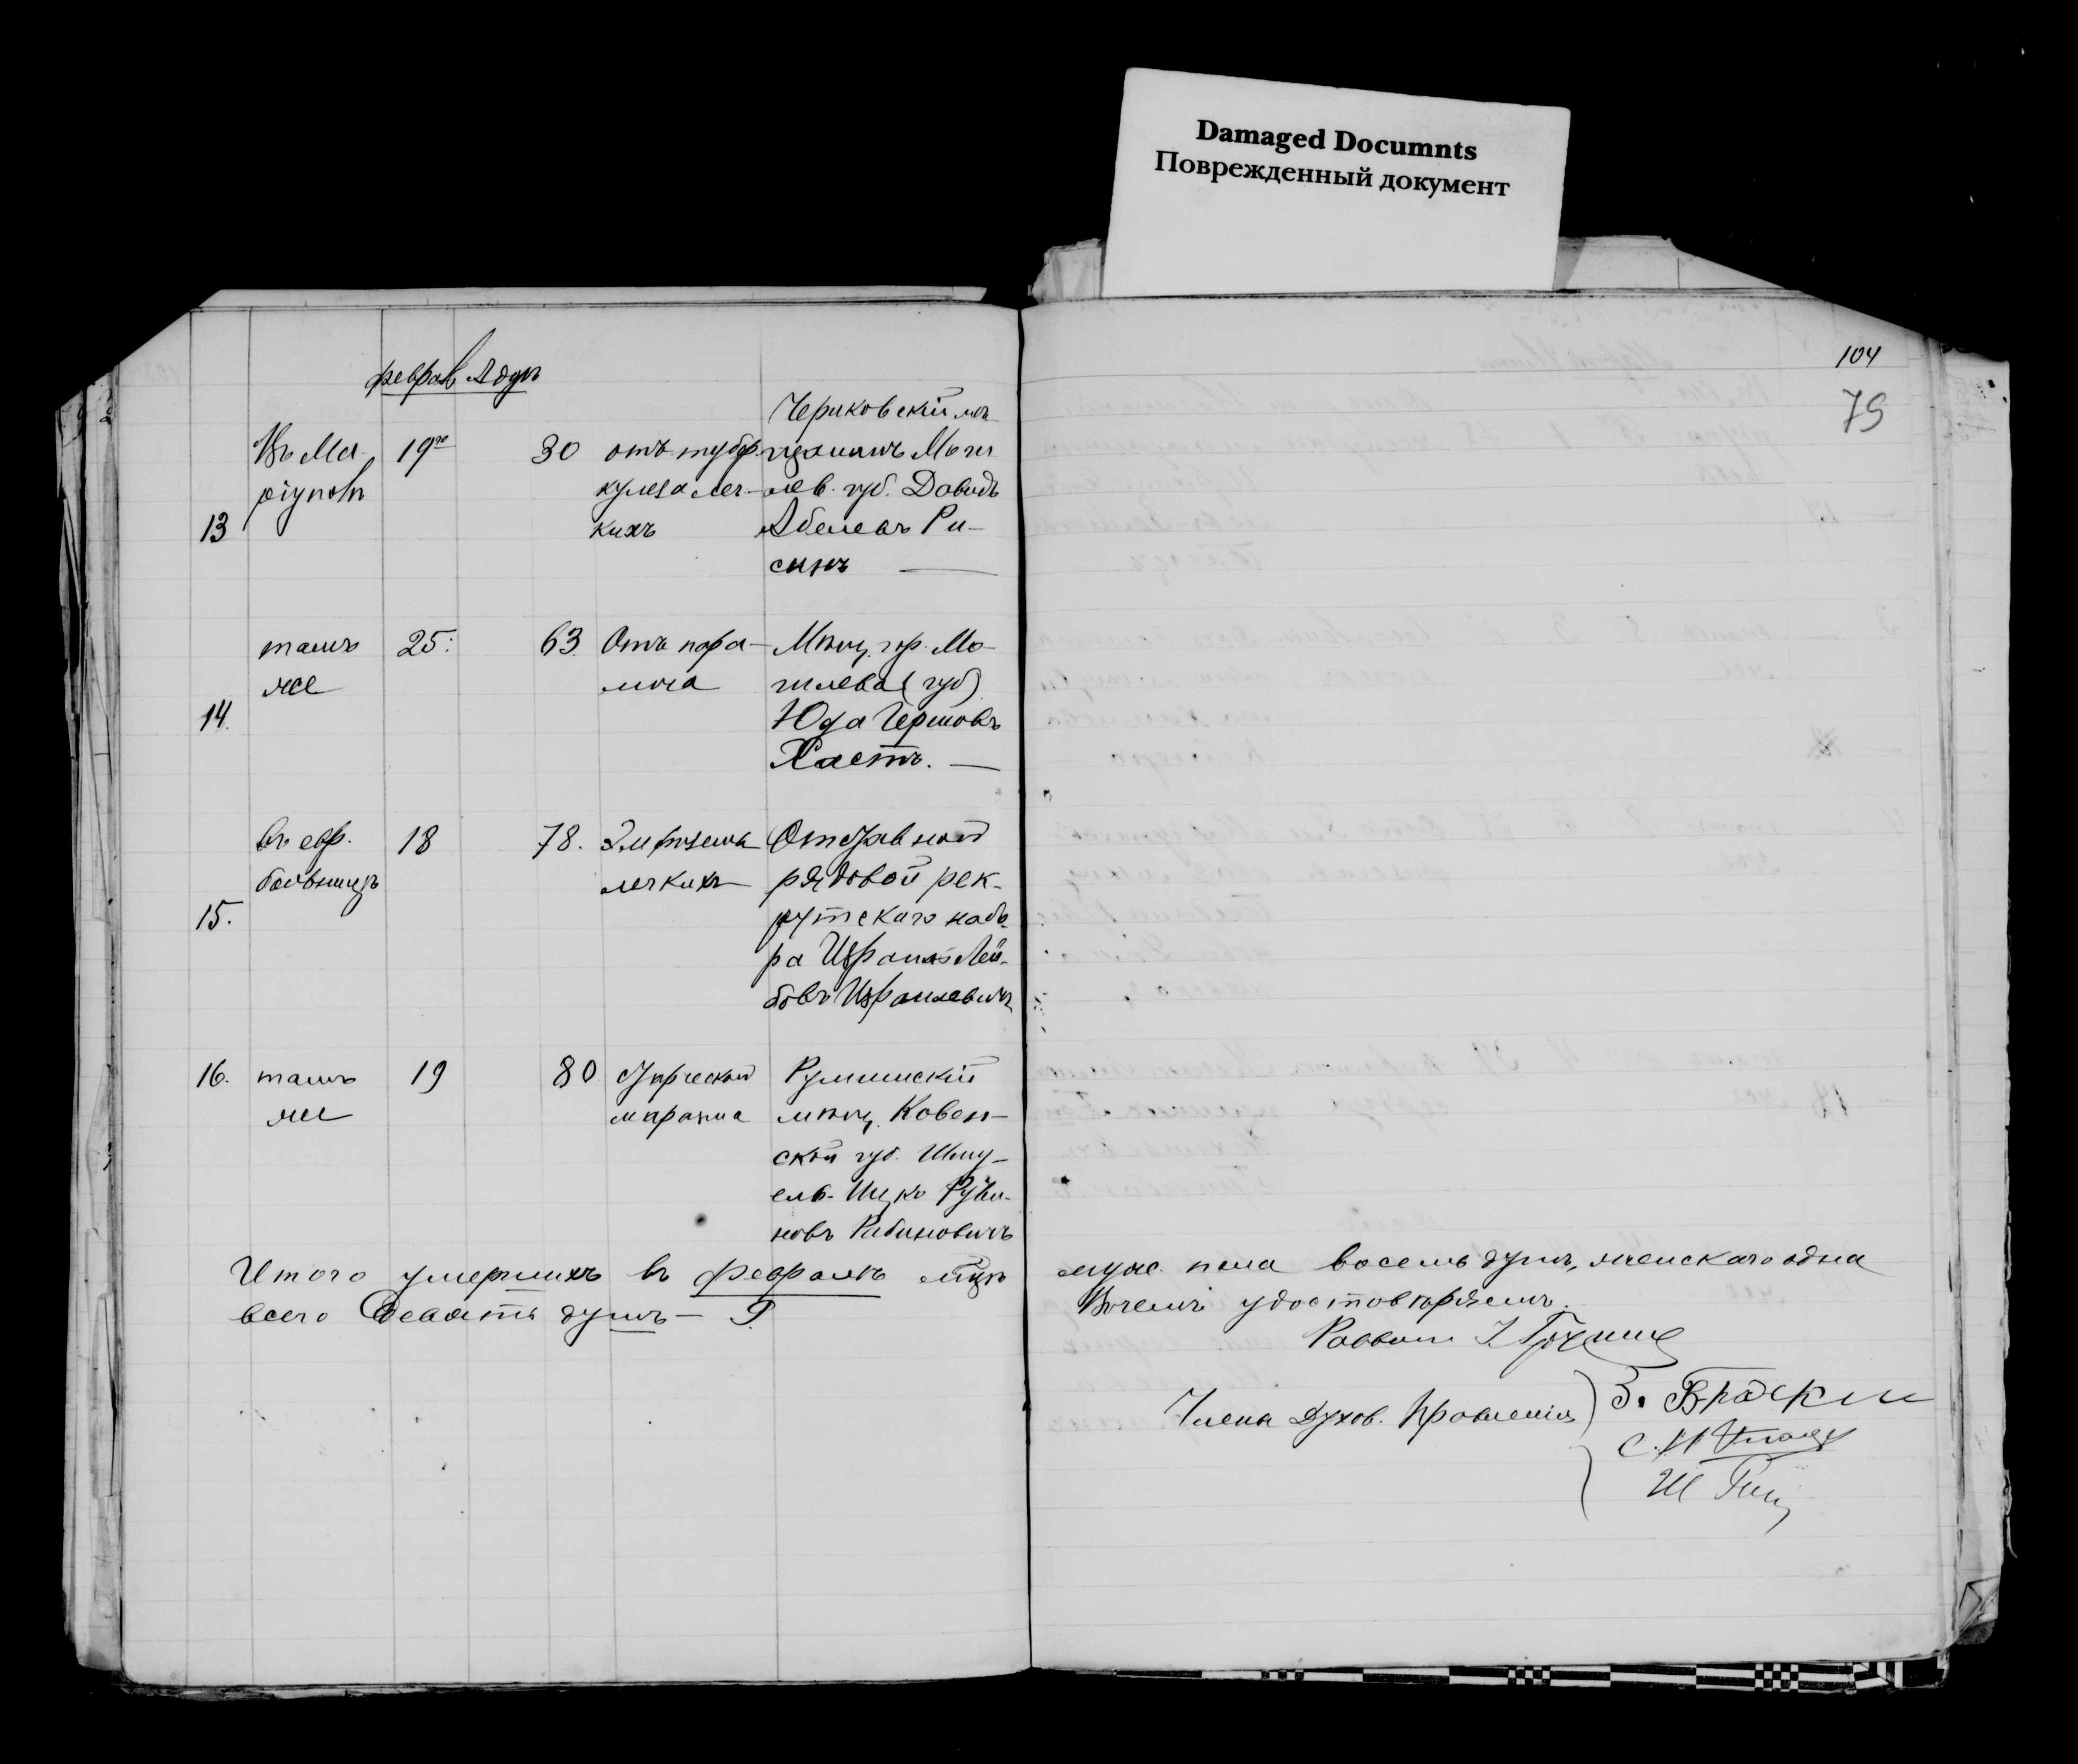 Damaged Documnts
Поврежденный документ
104
79
февраль Адаръ
13
Въ Ма-
ріуполѣ
19го
30
отъ тубер-
кулеза лег-
кихъ
Чериковскій мѣ-
щанинъ Моги-
лев. губ. Довидъ
Абелевъ Ри-
синъ —
14.
тамъ
же
25.
63.
Отъ пара-
лича
Мѣщ. гор. Мо-
гилева (губ)
Юда Гершовъ
Хастъ. —
15.
въ евр.
больницѣ
18
78.
Эмфизема
легкихъ
Отставной
рядовой рек-
рутскаго набо-
ра Израиль Лей-
бовъ Израилевичъ
16.
тамъ
же
19
80
Старческій
маразма
мѣщ. Ковен-
ской губ. Шму-
ель-Ицко Руви-
новъ Рабиновичъ
Итого умершихъ въ февралѣ мцѣ
всего девять душъ — 9.
муж. пола восемь душъ, женскаго одна
Въ чемъ удостовѣряемъ.
Раввинъ
Члены Духов. Правленія
З. Браскин
С. И.
Ш